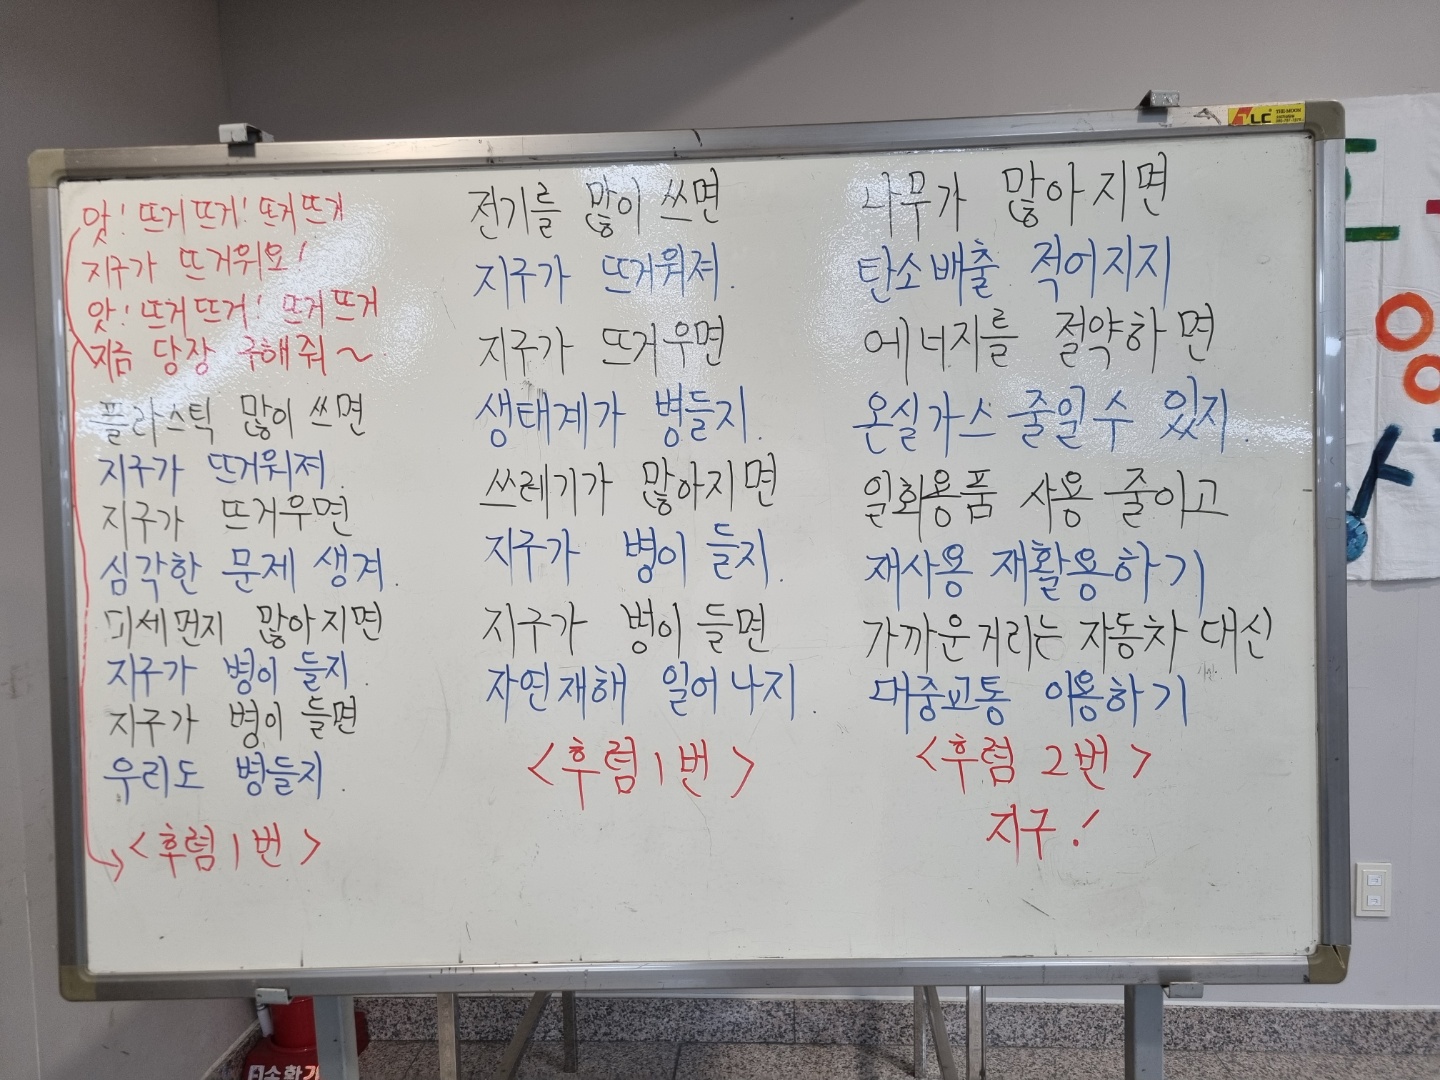 앗! 뜨거뜨거! 뜨거뜨거
지구가 뜨거워요!
앗! 뜨거뜨거! 뜨거뜨거
지금 당장 구해줘~
플라스틱 많이 쓰면
지구가 뜨거워져.
지구가 뜨거우면
심각한 문제 생겨.
미세먼지 많아지면
지구가 병이 들지.
지구가 병이 들면
우리도 병들지.
<후렴 1번>
전기를 많이 쓰면
지구가 뜨거워져.
지구가 뜨거우면
생태계가 병들지.
쓰레기가 많아지면
지구가 병이 들지.
지구가 병이 들면
자연재해 일어나지.
<후렴 1번>
나무가 많아지면
탄소배출 적어지지
에너지를 절약하면
온실가스 줄일수 있지.
일회용품 사용 줄이고
재사용 재활용하기
가까운거리는 자동차 대신
대중교통 이용하기
<후렴 2번>
지구!
소화기